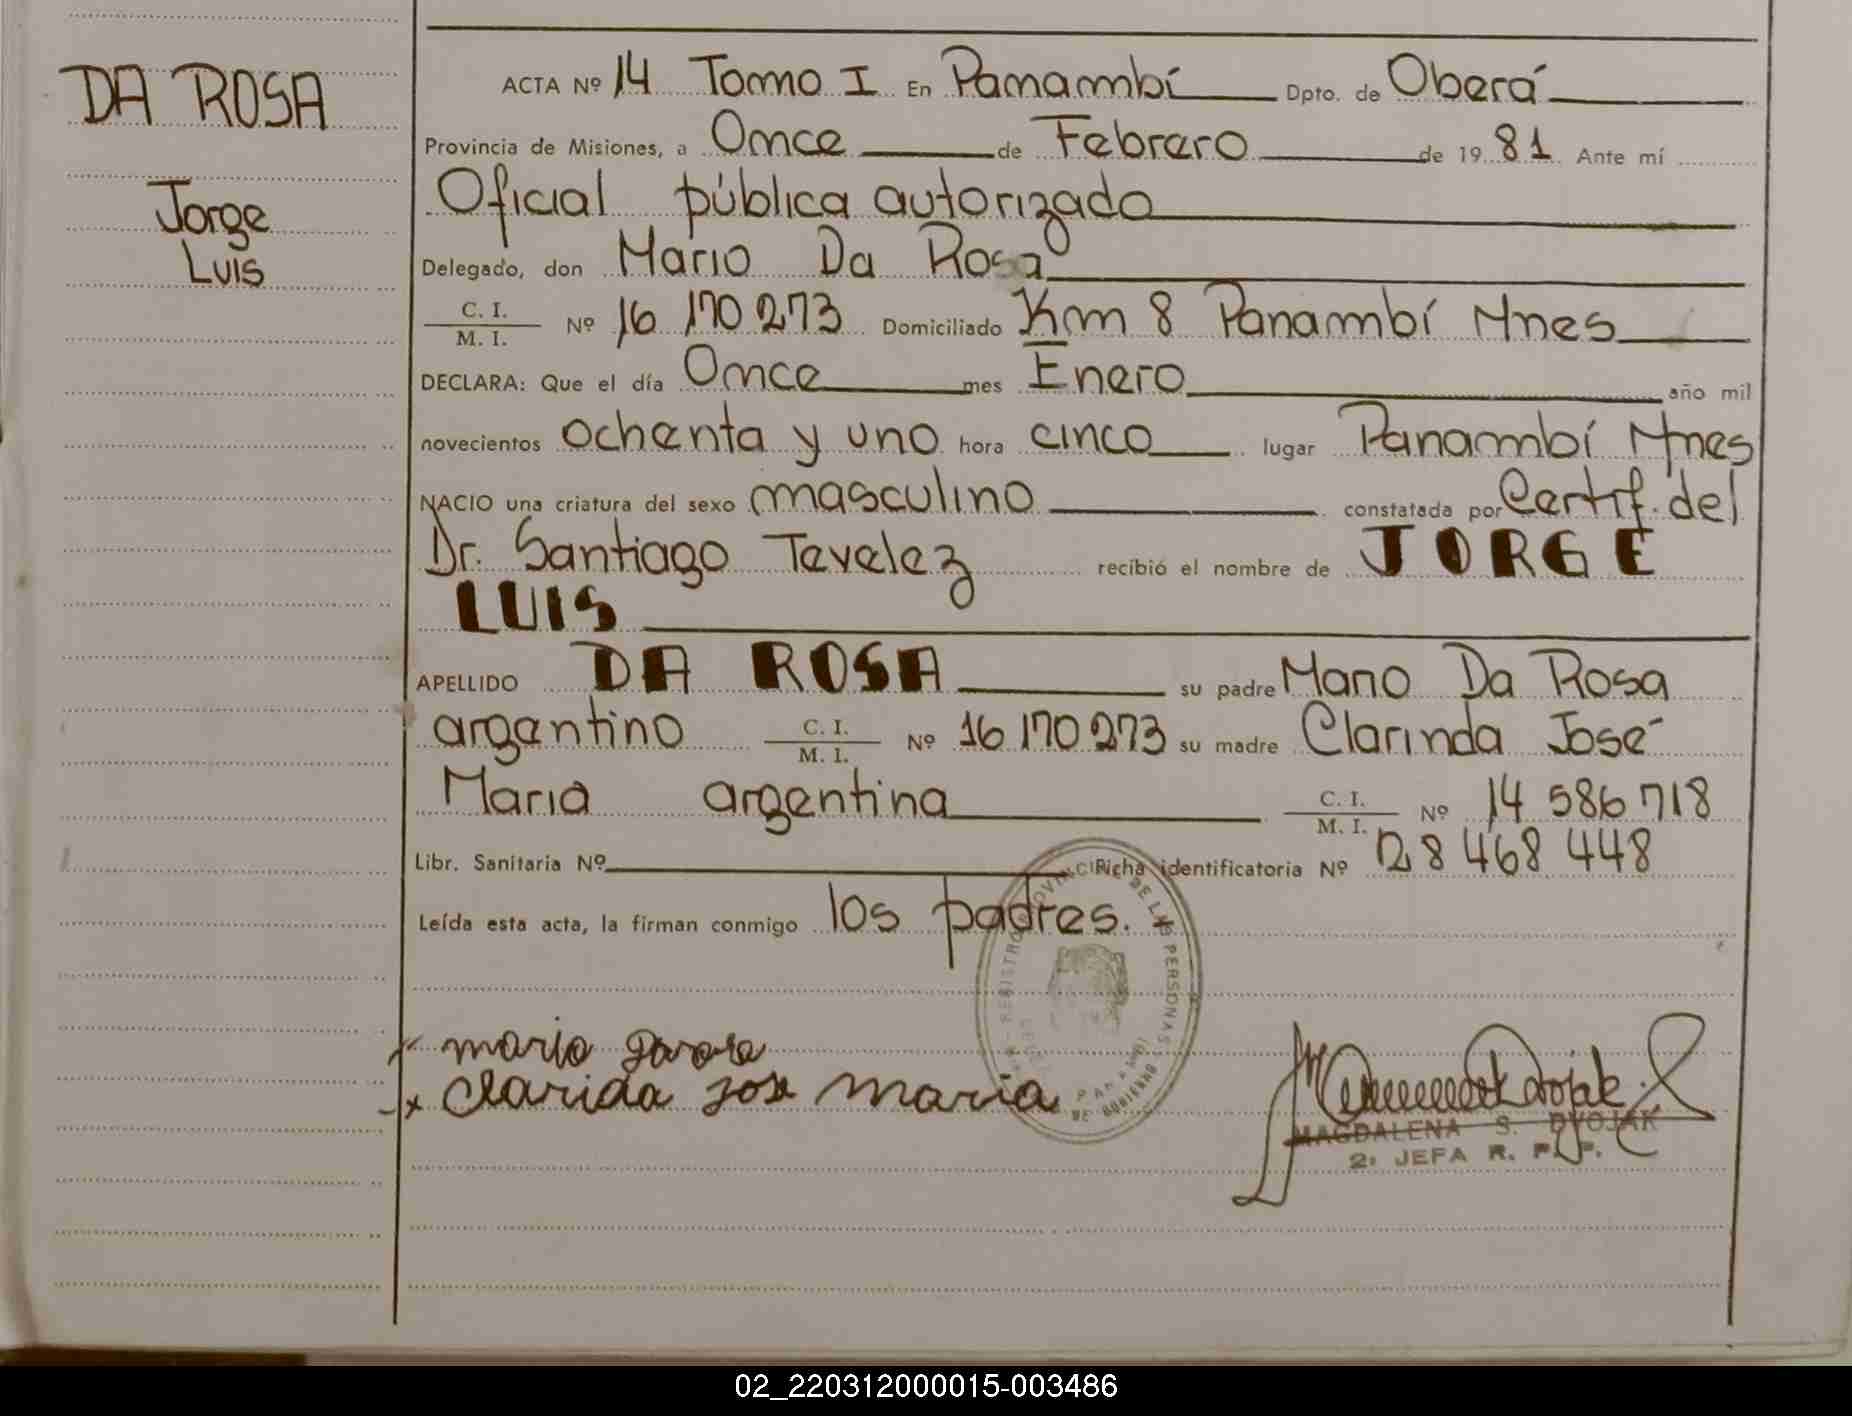 DA ROSA
Jorge
Luis
ACTA Nº 14 Tomo I En Panambí Dpto. de Oberá
Provincia de Misiones, a Once de Febrero de 1981 Ante mí
Oficial pública autorizado
Delegado, don Mario Da Rosa
C. I.
M. I. Nº 16 170 273 Domiciliado Km 8 Panambí Mnes
DECLARA: Que el día Once mes Enero año mil
novecientos ochenta y uno hora cinco lugar Panambí Mnes
NACIO una criatura del sexo masculino constatada por Certif. del
Dr. Santiago Tevelez recibió el nombre de JORGE
LUIS
APELLIDO DA ROSA su padre Mario Da Rosa
argentino C. I. M. I. Nº 16 170 273 su madre Clarinda José
Maria argentina C. I. M. I. Nº 14 586 718
Libr. Sanitaria Nº Ficha identificatoria Nº 28 468 448
Leída esta acta, la firman conmigo los padres.
REGISTRO PROVINCIAL DE LAS PERSONAS
PANAMBI
mario
Clarida Jose maria
MAGDALENA S. DVOJAK
2: JEFA R. P. P.
02_220312000015-003486